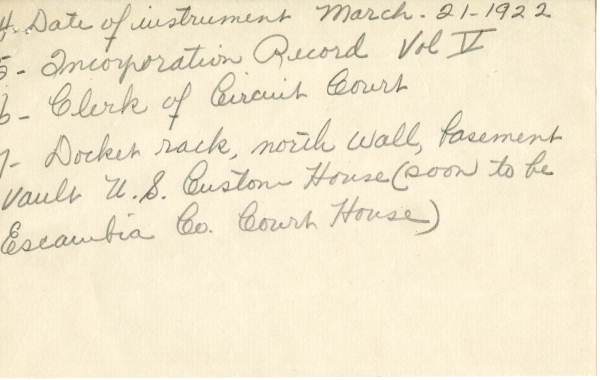 4. Date of instrument March. 21-1922
5- Incorporation Record Vol V
6- Clerk of Circuit Court
7- Docket rack, north wall, basement
vault U.S. Custom House (soon to be
Escambia Co. Court House)